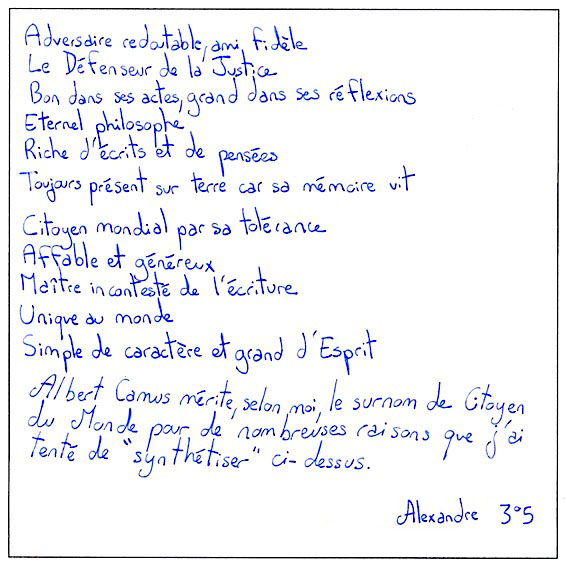 Adversaire redoutable, ami fidèle
Le Défenseur de la Justice
Bon dans ses actes, grand dans ses réflexions
Eternel philosophe
Riche d'écrits et de pensées
Toujours présent sur terre car sa mémoire vit
Citoyen mondial par sa tolérance
Affable et généreux
Maître incontesté de l'écriture
Unique au monde
Simple de caractère et grand d'Esprit
Albert Camus mérite, selon moi, le surnom de Citoyen
du Monde pour de nombreuses raisons que j'ai
tenté de "synthétiser" ci-dessus.
Alexandre 3°5